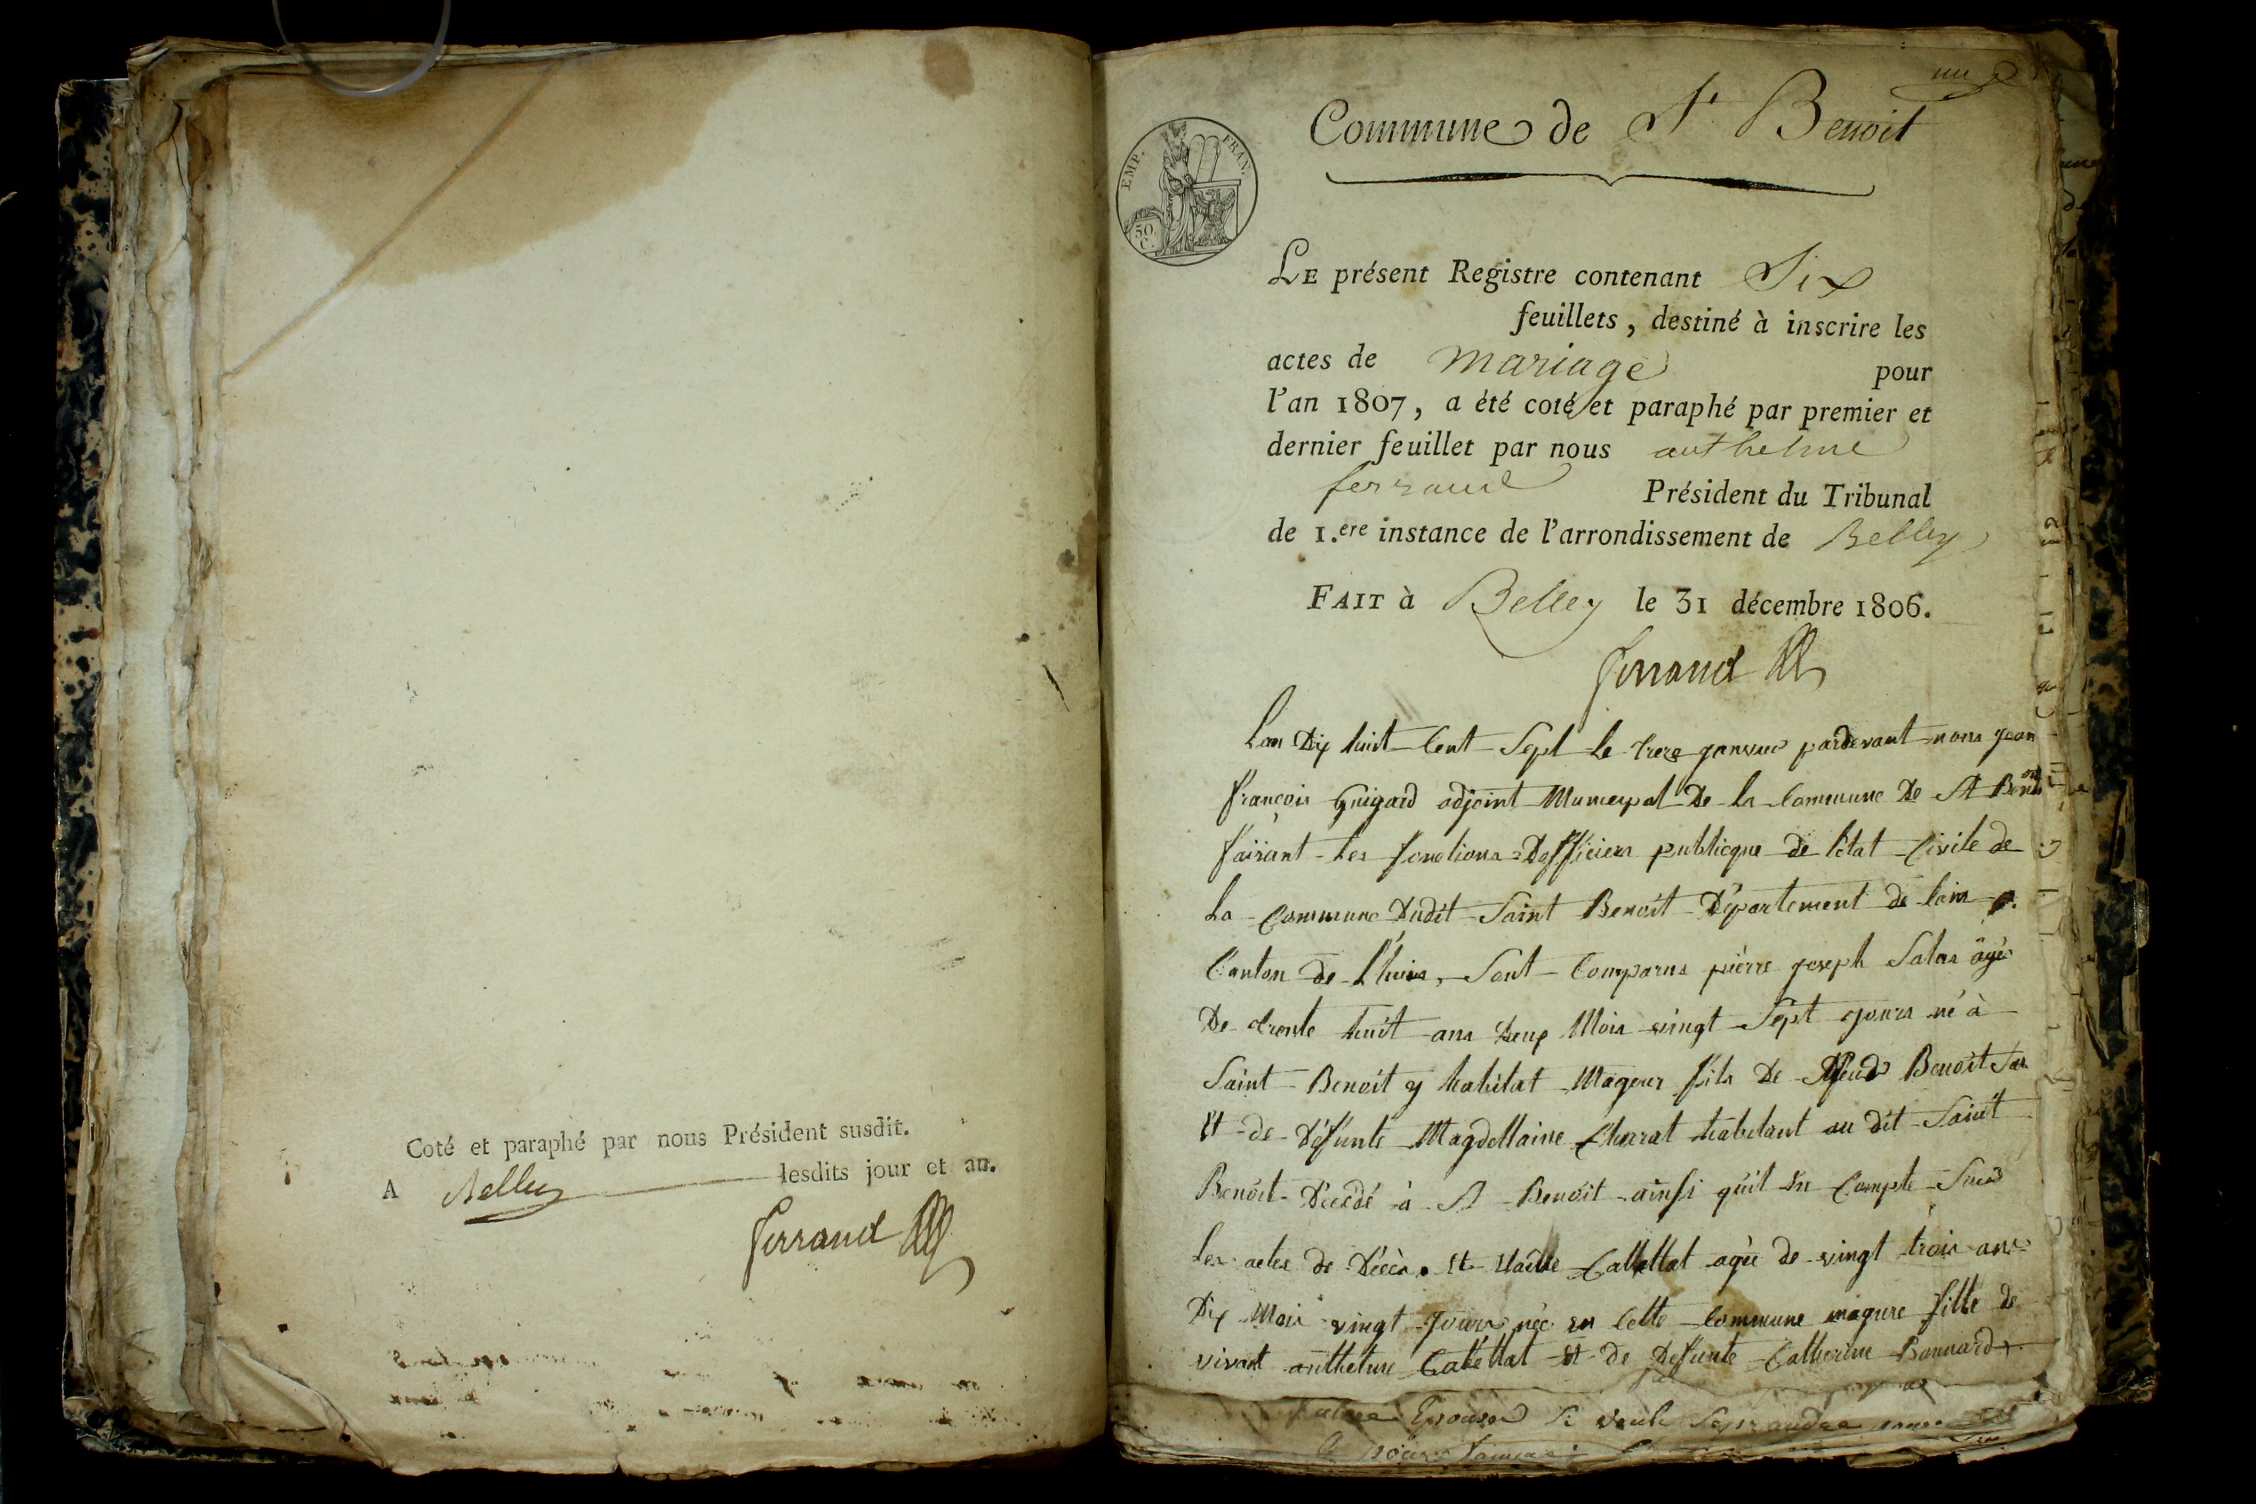 Coté et paraphé par nous Président susdit.
A Belley lesdits jour et an.
Ferrand
Commune de St Benoit
EMP. FRAN.
50 C.
LE présent Registre contenant Six
feuillets, destiné à inscrire les
actes de mariage pour
l'an 1807, a été coté et paraphé par premier et
dernier feuillet par nous anthelme
ferrand Président du Tribunal
de 1.ere instance de l'arrondissement de Belley
FAIT à Belley le 31 décembre 1806.
Ferrand
Lan Dix huit Cent Sept Le pardevant nous Jean
françois Guigard adjoint Municipal De la Commune De St Benoit
faisant les fonctions Dofficier publicque de létat Civile de
La Commune Dudit Saint Benoit Département de lain
Canton de Lhuis, Sont Comparus pierre joseph Salas âgé
De trente huit ans deux Mois vingt Sept jours né à
Saint Benoit y habitat Mageur fils De Benoit
Et de Défunte Magdellaine habitant au dit Saint
Benoit Décédé à St Benoit ainsi quil En Compte Sur
Les actes de Décès. Et Callettat agée de vingt trois ans
Dix Mois vingt Jours née en Cette Commune magure fille de
vivant anthelme Callettat Et de Defunte Catherine Bonnard
future Epouse